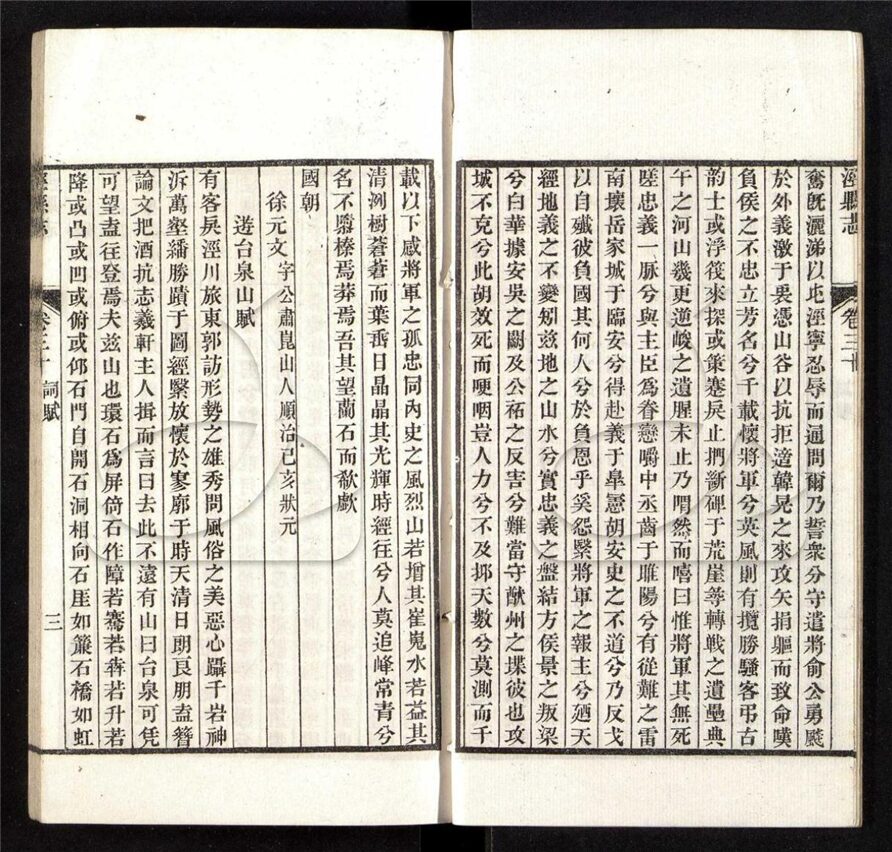 涇縣志
卷三十
奮旣灑涕以屯涇寧忍辱而通問爾乃誓衆分守遣將俞公勇颷
於外義激于裏憑山谷以抗拒適韓晃之來攻矢捐軀而致命嘆
負侯之不忠立芳名兮千載懷將軍兮英風則有攬勝騷客弔古
韵士或浮筏來探或策蹇戾止捫斷碑于荒崖等轉戰之遺壘典
午之河山幾更遒峻之遺腥未止乃喟然而嘻曰惟將軍其無死
嗟忠義一脉兮與主臣爲眷戀嚼中丞齒于睢陽兮有從難之雷
南壞岳家城于臨安兮得赴義于臯憲胡安史之不道兮乃反戈
以自殲彼負國其何人兮於負恩乎奚怨繄將軍之報主兮廼天
經地義之不變矧兹地之山水兮實忠義之盤結方侯景之叛梁
兮白華據安吳之闘及公祏之反害兮難當守猷州之堞彼也攻
城不克兮此胡效死而哽咽豈人力兮不及抑天數兮莫測而千
載以下感將軍之孤忠同內史之風烈山若增其崔嵬水若益其
清洌樹蒼蒼而葉香日晶晶其光輝時經往兮人莫追峰常青兮
名不隳榛焉莽焉吾其望蘭石而欷歔
國朝
徐元文字公肅崑山人順治己亥狀元
遊台泉山賦
有客戾涇川旅東郭訪形勢之雄秀問風俗之美惡心躡千岩神
泝萬壑繙勝蹟于圖經繄放懷於寥廓于時天清日朗良朋盍簪
論文把酒抗志羲軒主人揖而言曰去此不遠有山曰台泉可凭
可望盍往登焉夫兹山也環石爲屏倚石作障若騫若犇若升若
降或凸或凹或俯或仰石門自開石洞相向石厓如簾石橋如虹
卷三十 詞賦
三